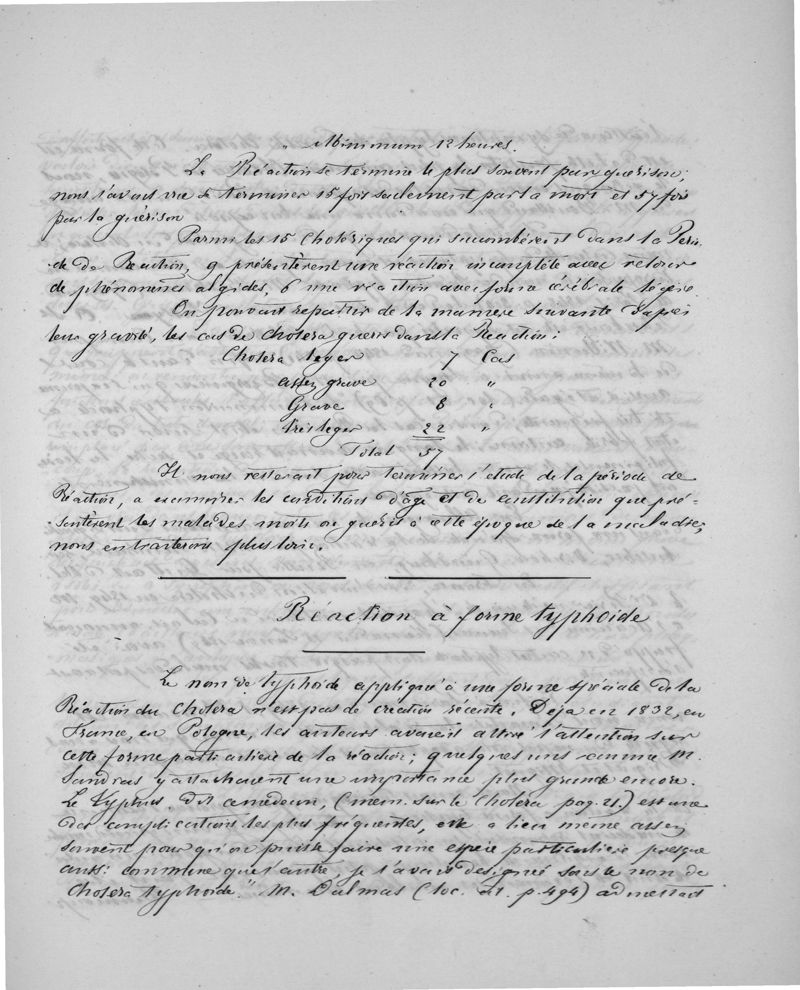 „ Minimum 12 heures.
La Réaction se termine le plus souvent par guérison;
nous l'avons vue se terminer 15 fois seulement par la mort et 57 fois
par la guérison
Parmi les 15 Cholériques qui succombèrent dans la Pério-
-de de Réaction, 9 présentèrent une réaction incomplète avec retour
de phénomènes algides, 6 une réaction avec forme cérébrale légère
On pouvait repartir de la manière suivante d'après
leur gravité, les cas de choléra guéris dans la Réaction:
Choléra léger 7 Cas
assez grave 20 „
Grave 8 „
très léger 22 „
Total 57
Il nous resterait pour terminer l'étude de la période de
Réaction, a examiner les conditions d'âge et de constitution que pré-
-sentèrent les malades morts ou guéris à cette époque de la maladie;
nous en traiterons plus loin.
Réaction à forme typhoïde
Le nom de typhoïde appliqué à une forme spéciale de la
Réaction du choléra n'est pas de création récente. Déjà en 1832, en
France, en Pologne, les auteurs avaient attiré l'attention sur
cette forme particulière de la réaction; quelques uns comme M.
Sandras y attachaient une importance plus grande encore.
Le Typhus, dit (mem. sur le choléra pag. 21.) est une
des complications les plus fréquentes, elle a lieu même assez
souvent pour qu'on puisse faire une espèce particulière presque
aussi commune que l'autre, je l'avais désigné sous le nom de
choléra typhoïde." M. Dalmas (loc. cit. p. 494) admettait